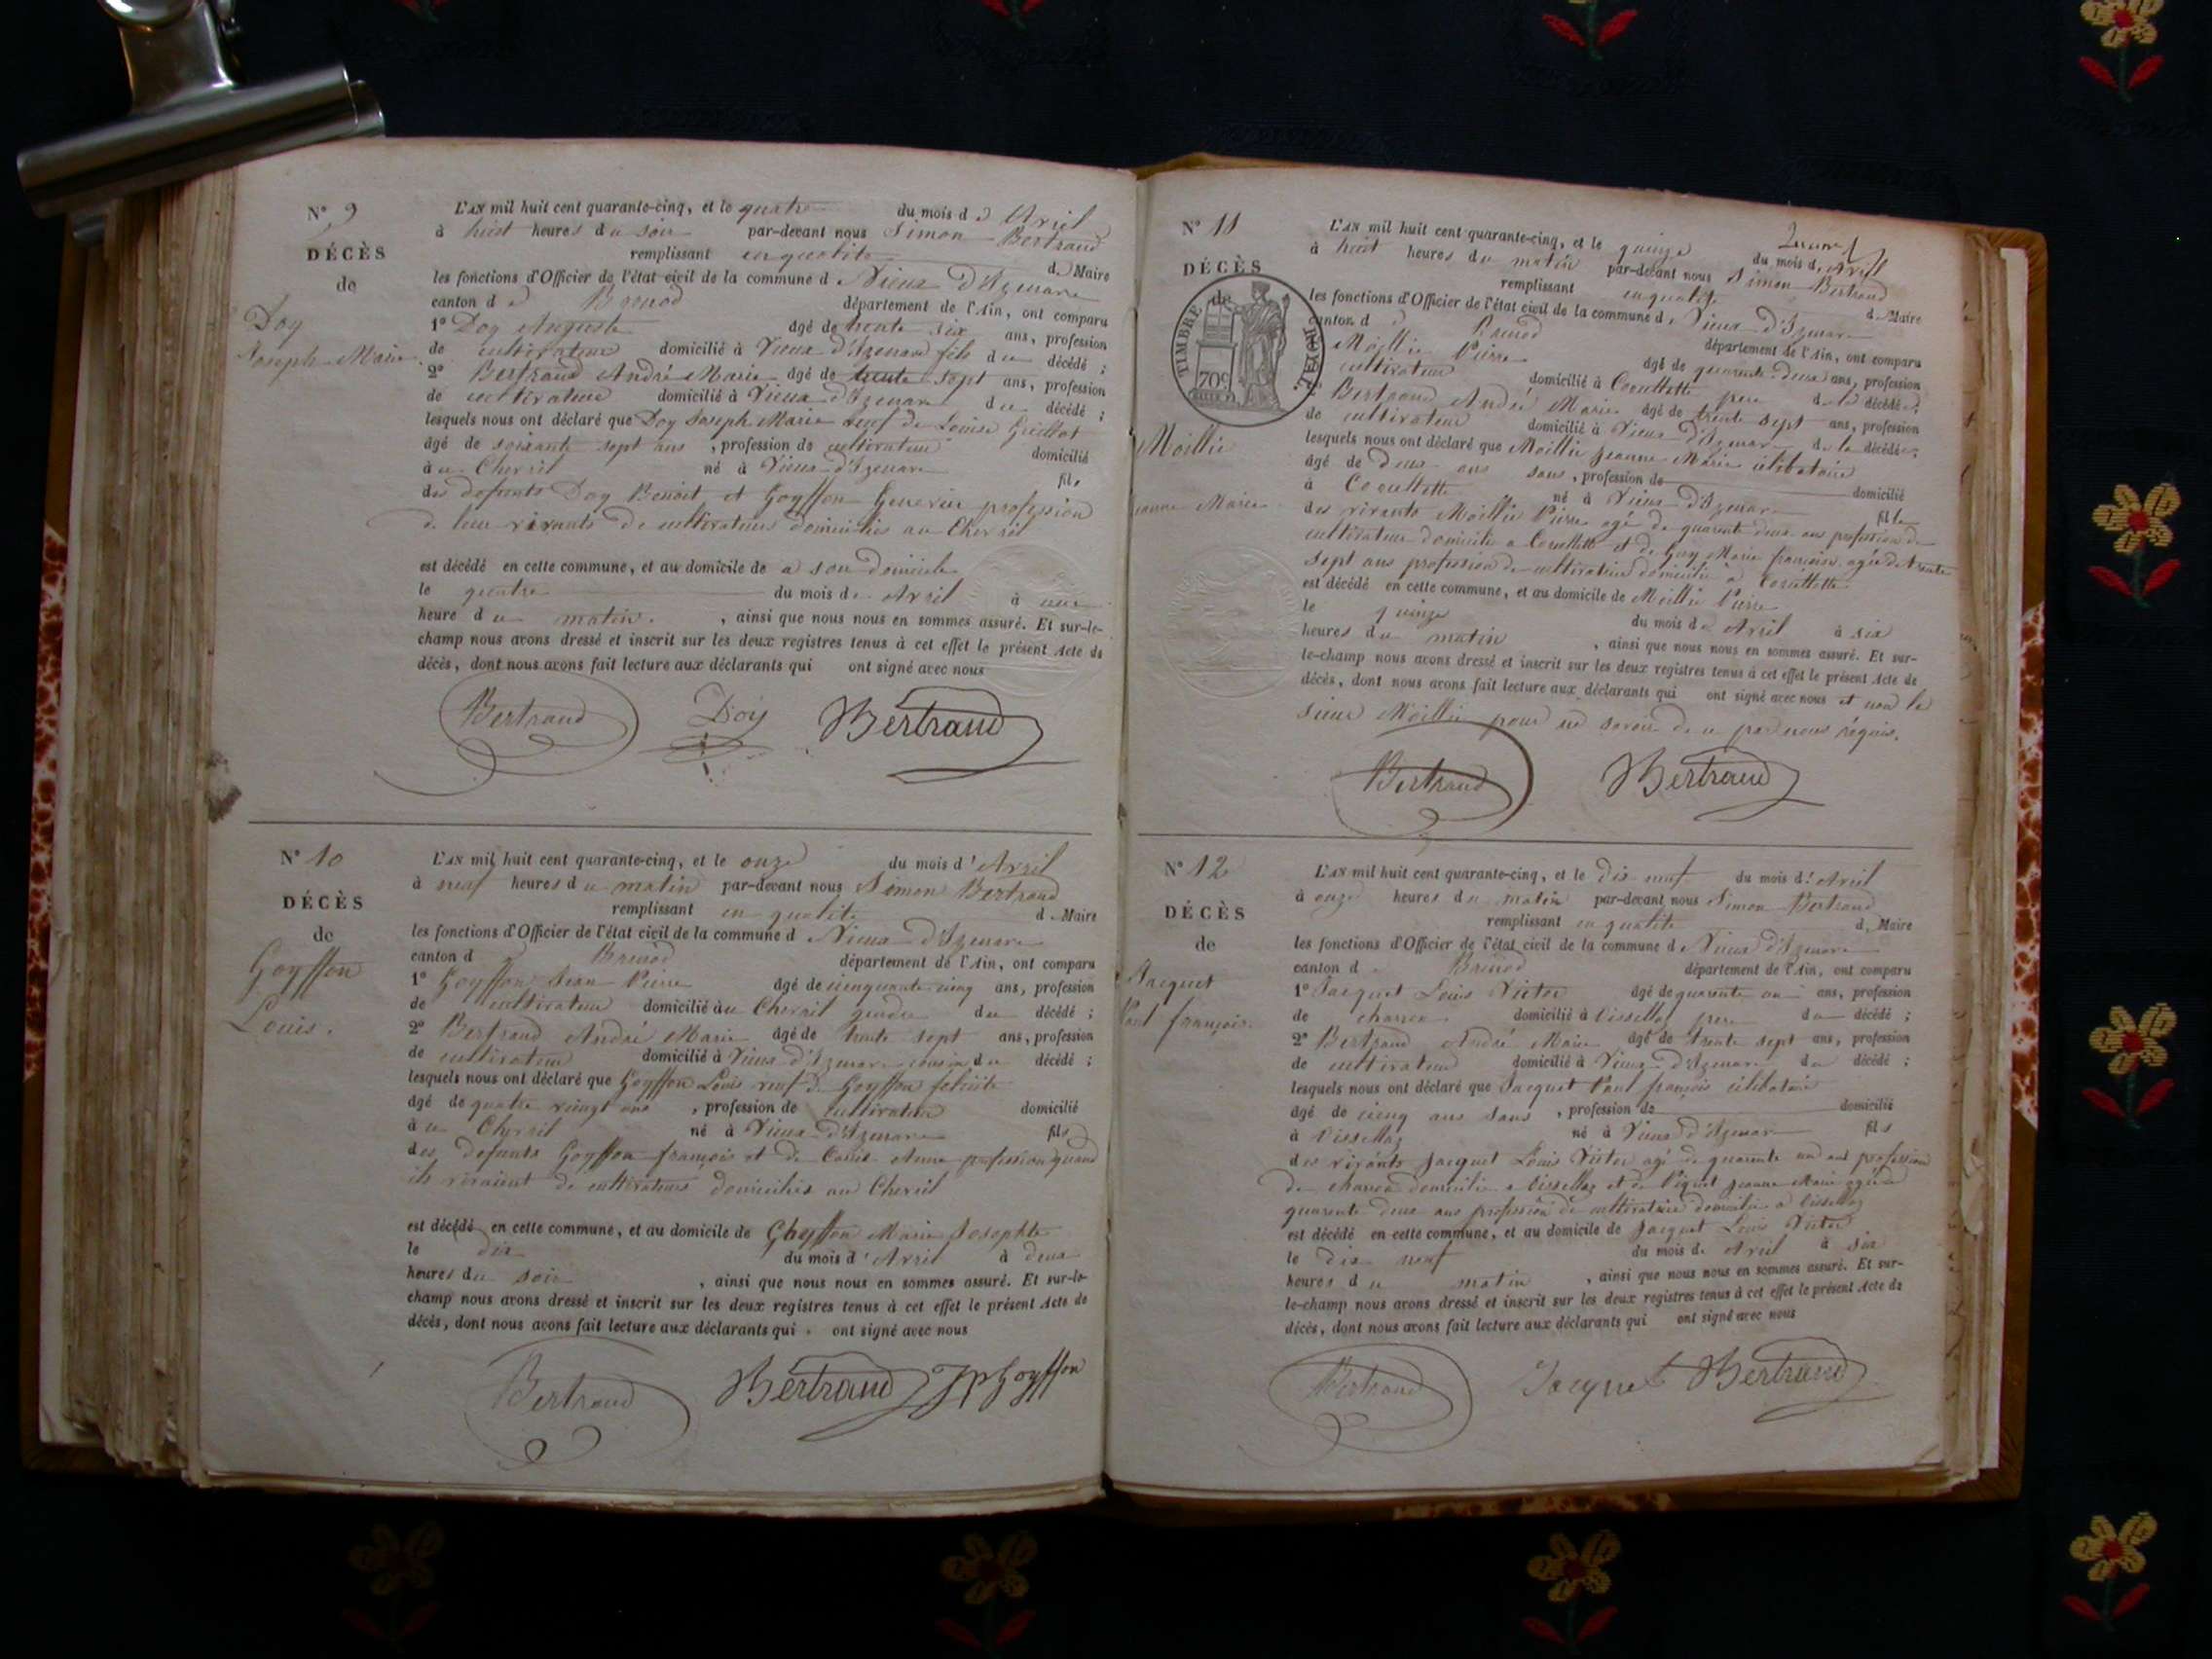 N° 9
DÉCÈS
de
Doy
Joseph Marie
L'AN mil huit cent quarante-cinq, et le quatre du mois d'Avril
à huit heures du soir par-devant nous Simon Bertrand
remplissant en qualité de Maire
les fonctions d'Officier de l'état civil de la commune de Vieux-d'Izenave
canton de Brénod département de l'Ain, ont comparu
1° Doy Auguste âgé de trente six ans, profession
de cultivateur domicilié à Vieux d'Izenave fils du décédé ;
2° Bertrand André Marie âgé de trente sept ans, profession
de cultivateur domicilié à Vieux d'Izenave du décédé ;
lesquels nous ont déclaré que Doy Joseph Marie veuf de Louise Guillot
âgé de soixante sept ans , profession de cultivateur domicilié
au Chevril né à Vieux-d'Izenave fils
des defunts Doy Benoit et Goyffon Genevieve profession
de leur vivants de cultivateurs domiciliés au Chevril
est décédé en cette commune, et au domicile de a son domicile
le quatre du mois de Avril à une
heure du matin. , ainsi que nous nous en sommes assuré. Et sur-le-
champ nous avons dressé et inscrit sur les deux registres tenus à cet effet le présent Acte de
décès, dont nous avons fait lecture aux déclarants qui ont signé avec nous
Bertrand Doy Bertrand
N° 10
DÉCÈS
de
Goyffon
Louis.
L'AN mil huit cent quarante-cinq, et le onze du mois d'Avril
à neuf heures du matin par-devant nous Simon Bertrand
remplissant en qualité de Maire
les fonctions d'Officier de l'état civil de la commune de Vieux-d'Izenave
canton de Brénod département de l'Ain, ont comparu
1° Goyffon Jean Pierre âgé de cienquante-cinq ans, profession
de cultivateur domicilié au Chevril gendre du décédé ;
2° Bertrand André Marie âgé de trente sept ans, profession
de cultivateur domicilié à Vieux d'Izenave cousin du décédé ;
lesquels nous ont déclaré que Goyffon Louis veuf de Goyffon felicité
âgé de quatre vingt ans , profession de cultivateur domicilié
au Chevril né à Vieux-d'Izenave fils
des defunts Goyffon françois et de Anne profession quand
ils vivaient de cultivateurs domiciliés au Chevril
est décédé en cette commune, et au domicile de Goyffon Marie Josephte
le dix du mois d'Avril à deux
heures du soir , ainsi que nous nous en sommes assuré. Et sur-le-
champ nous avons dressé et inscrit sur les deux registres tenus à cet effet le présent Acte de
décès, dont nous avons fait lecture aux déclarants qui ont signé avec nous
Bertrand Bertrand JP Goyffon
N° 11
DÉCÈS
de
TIMBRE ROYAL
70c
Moillie
Jeanne Marie
L'AN mil huit cent quarante-cinq, et le quinze du mois d'Avril
à huit heures du matin par-devant nous Simon Bertrand
remplissant en qualité de Maire
les fonctions d'Officier de l'état civil de la commune de Vieux-d'Izenave
canton de Brénod département de l'Ain, ont comparu
Moillie Pierre âgé de quarante-deux ans, profession
cultivateur domicilié à Corullette pere de la décédée ;
Bertrand André Marie âgé de trente sept ans, profession
de cultivateur domicilié à Vieux d'Izenave de la décédée ;
lesquels nous ont déclaré que Moillie Jeanne Marie célibataire
âgé de deux ans sans , profession de domicilié
à Corullette né à Vieux-d'Izenave fille
des vivants Moillie Pierre agé de quarante deux ans profession de
cultivateur domicilié a Corullette et de Guy Marie françoise agée de trente
sept ans profession de cultivateur domicilié à Corullette
est décédé en cette commune, et au domicile de Moillie Pierre
le quinze du mois de Avril à six
heures du matin , ainsi que nous nous en sommes assuré. Et sur-
le-champ nous avons dressé et inscrit sur les deux registres tenus à cet effet le présent Acte de
décès, dont nous avons fait lecture aux déclarants qui ont signé avec nous et non le
sieur Moillie pour ne savoir de ce par nous réquis.
Bertrand Bertrand
N° 12
DÉCÈS
de
Jacquet
Paul françois.
L'AN mil huit cent quarante-cinq, et le dix neuf du mois d'Avril
à onze heures du matin par-devant nous Simon Bertrand
remplissant en qualité de Maire
les fonctions d'Officier de l'état civil de la commune de Vieux d'Izenave
canton de Brénod département de l'Ain, ont comparu
1° Jacquet Louis Victor âgé de quarante un ans, profession
de charron domicilié à Vissellaz pere du décédé ;
2° Bertrand André Marie âgé de trente sept ans, profession
de cultivateur domicilié à Vieux-d'Izenave du décédé ;
lesquels nous ont déclaré que Jacquet Paul françois célibataire
âgé de cienq ans sans , profession de domicilié
à Vissellaz né à Vieux d'Izenave fils
des vivants Jacquet Louis Victor agé de quarante un ans profession
de charron domicilié a Vissellaz et de Jeanne Marie agée de
quarente deux ans profession de cultivatrice domiciliée a Vissellaz
est décédé en cette commune, et au domicile de Jacquet Louis Victor
le dix neuf du mois de Avril à six
heures du matin , ainsi que nous nous en sommes assuré. Et sur-
le-champ nous avons dressé et inscrit sur les deux registres tenus à cet effet le présent Acte de
décès, dont nous avons fait lecture aux déclarants qui ont signé avec nous
Bertrand Jacquet Bertrand